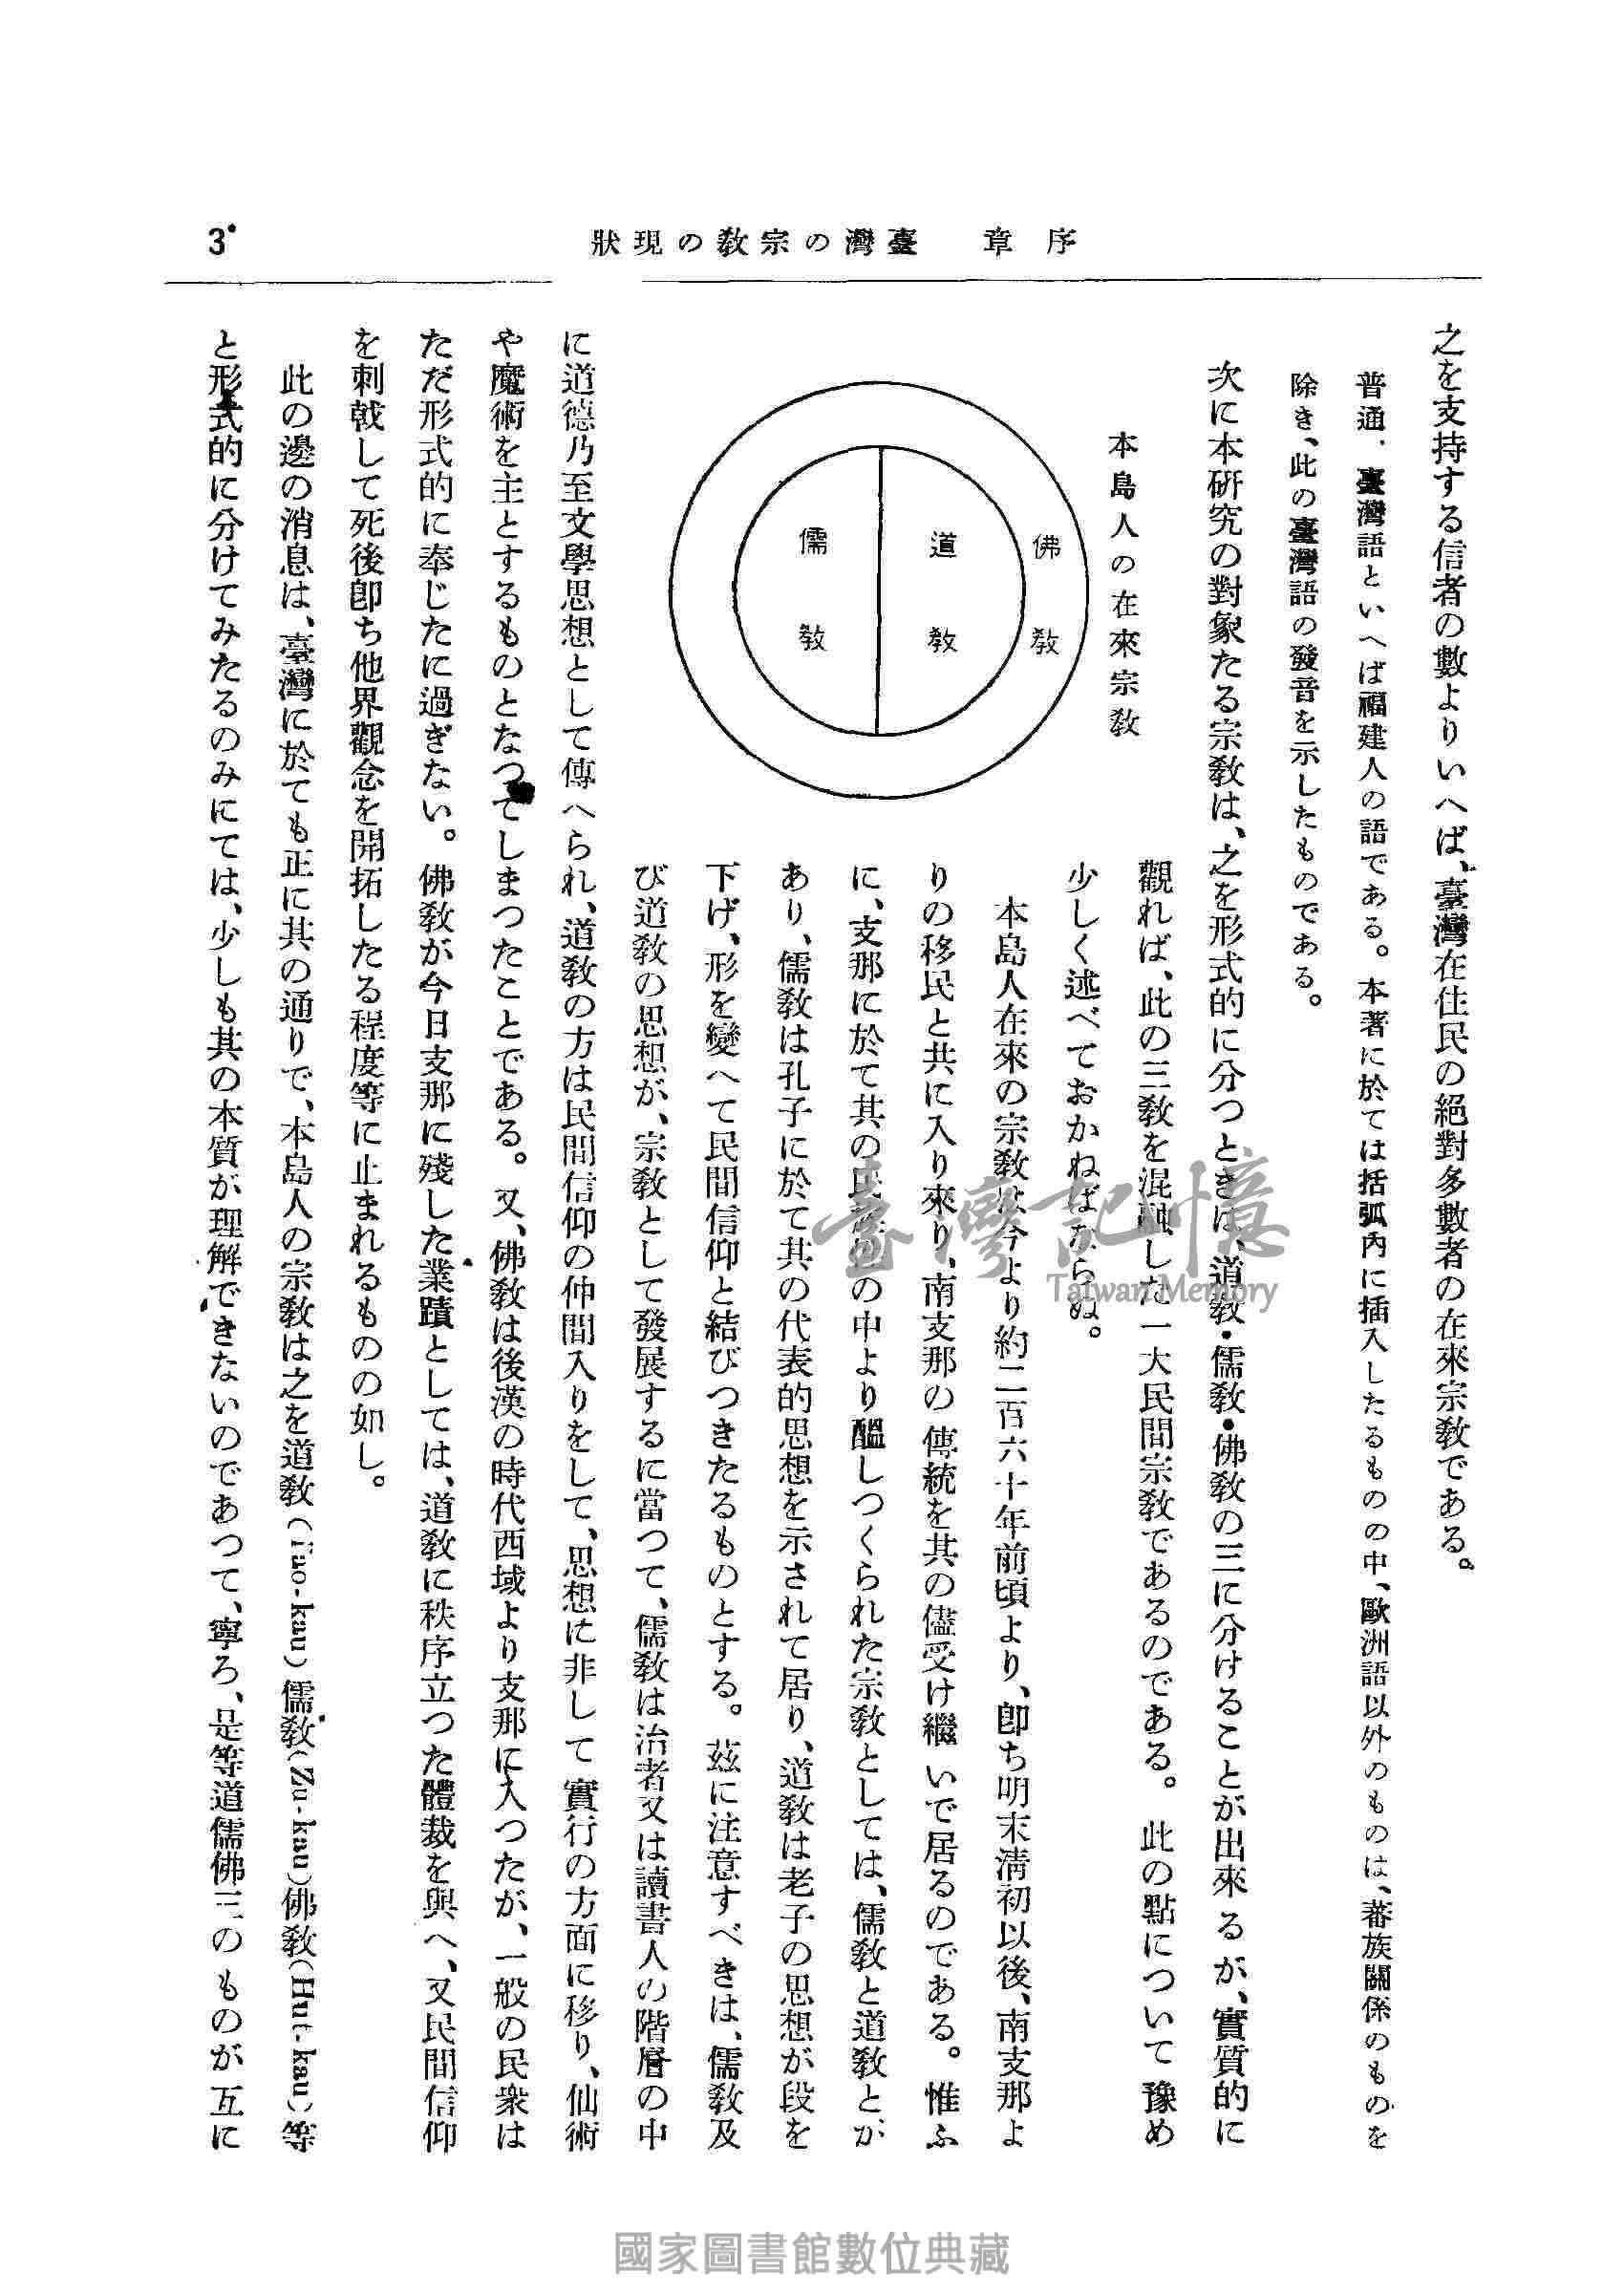 序章 臺灣の宗教の現狀
3
之を支持する信者の數よりいへば、臺灣在住民の絕對多數者の在來宗教である。
普通、臺灣語といへば福建人の語である。本著に於ては括弧內に插入したるものの中、歐洲語以外のものは、蕃族關係のものを
除き、此の臺灣語の發音を示したものである。
次に本硏究の對象たる宗教は、之を形式的に分つときは、道教・儒教・佛教の三に分けることが出來るが、實質的に
觀れば、此の三教を混融した一大民間宗教であるのである。此の點について豫め
少しく述べておかねばならぬ。
本島人の在來宗教
佛教
道教
儒教
本島人在來の宗教は今より約二百六十年前頃より、卽ち明末淸初以後、南支那よ
りの移民と共に入り來り、南支那の傳統を其の儘受け繼いで居るのである。惟ふ
に、支那に於て其の民の中より醞しつくられた宗教としては、儒教と道教とが
あり、儒教は孔子に於て其の代表的思想を示されて居り、道教は老子の思想が段を
下げ、形を變へて民間信仰と結びつきたるものとする。茲に注意すべきは、儒教及
び道教の思想が、宗教として發展するに當つて、儒教は治者又は讀書人の階層の中
に道德乃至文學思想として傳へられ、道教の方は民間信仰の仲間入りをして、思想は非して實行の方面に移り、仙術
や魔術を主とするものとなつてしまつたことである。又、佛教は後漢の時代西域より支那に入つたが、一般の民衆は
ただ形式的に奉じたに過ぎない。佛教が今日支那に殘した業蹟としては、道教に秩序立つた體裁を與へ、又民間信仰
を刺戟して死後卽ち他界觀念を開拓したる程度等に止まれるものの如し。
此の邊の消息は、臺灣に於ても正に其の通りで、本島人の宗教は之を道教(Tao-kau)儒教(Zu-kau)佛教(Hut-kau)等
と形式的に分けてみたるのみにては、少しも其の本質が理解できないのであつて、寧ろ、是等道儒佛三のものが互に
臺灣記憶
Taiwan Memory
國家圖書館數位典藏